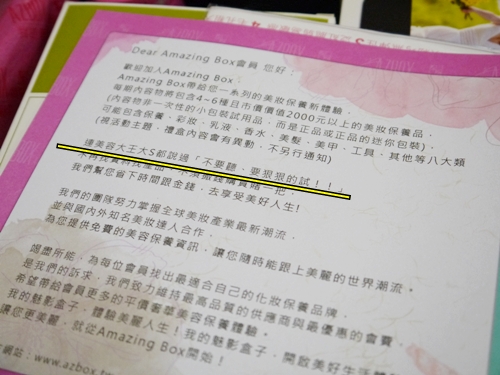 Dear Amazing Box會員 您好：
歡迎加入Amazing Box：
Amazing Box帶給您一系列的美妝保養新體驗，
每期內容物將包含4~6種且市價價值2000元以上的美妝保養品，
(內容物非一次性的小包裝試用品，而是正品或正品的迷你包裝)，
可能包含保養、彩妝、乳液、香水、美髮、美甲、工具、其他等八大類
(視活動主題，禮盒內容會有異動，不另行通知)
連美容大王大S都說過「不要聽、要狠狠的試！！」
我們幫您省下時間跟金錢，去享受美好人生!
我們的團隊努力掌握全球美妝產業最新潮流，
並與國內外知名美妝達人合作，
為您提供免費的美容保養資訊，讓您隨時能跟上美麗的世界潮流。
竭盡所能，為每位會員找出最適合自己的化妝保養品牌，
是我們的訴求，我們致力維持最高品質的供應商與最優惠的會費，
希望帶給會員更多的平價奢華美容保養體驗。
我的魅影盒子，體驗美麗人生！我的魅影盒子，開啟美好生活
讓您更美麗，就從Amazing Box開始！
網站：www.azbox.t